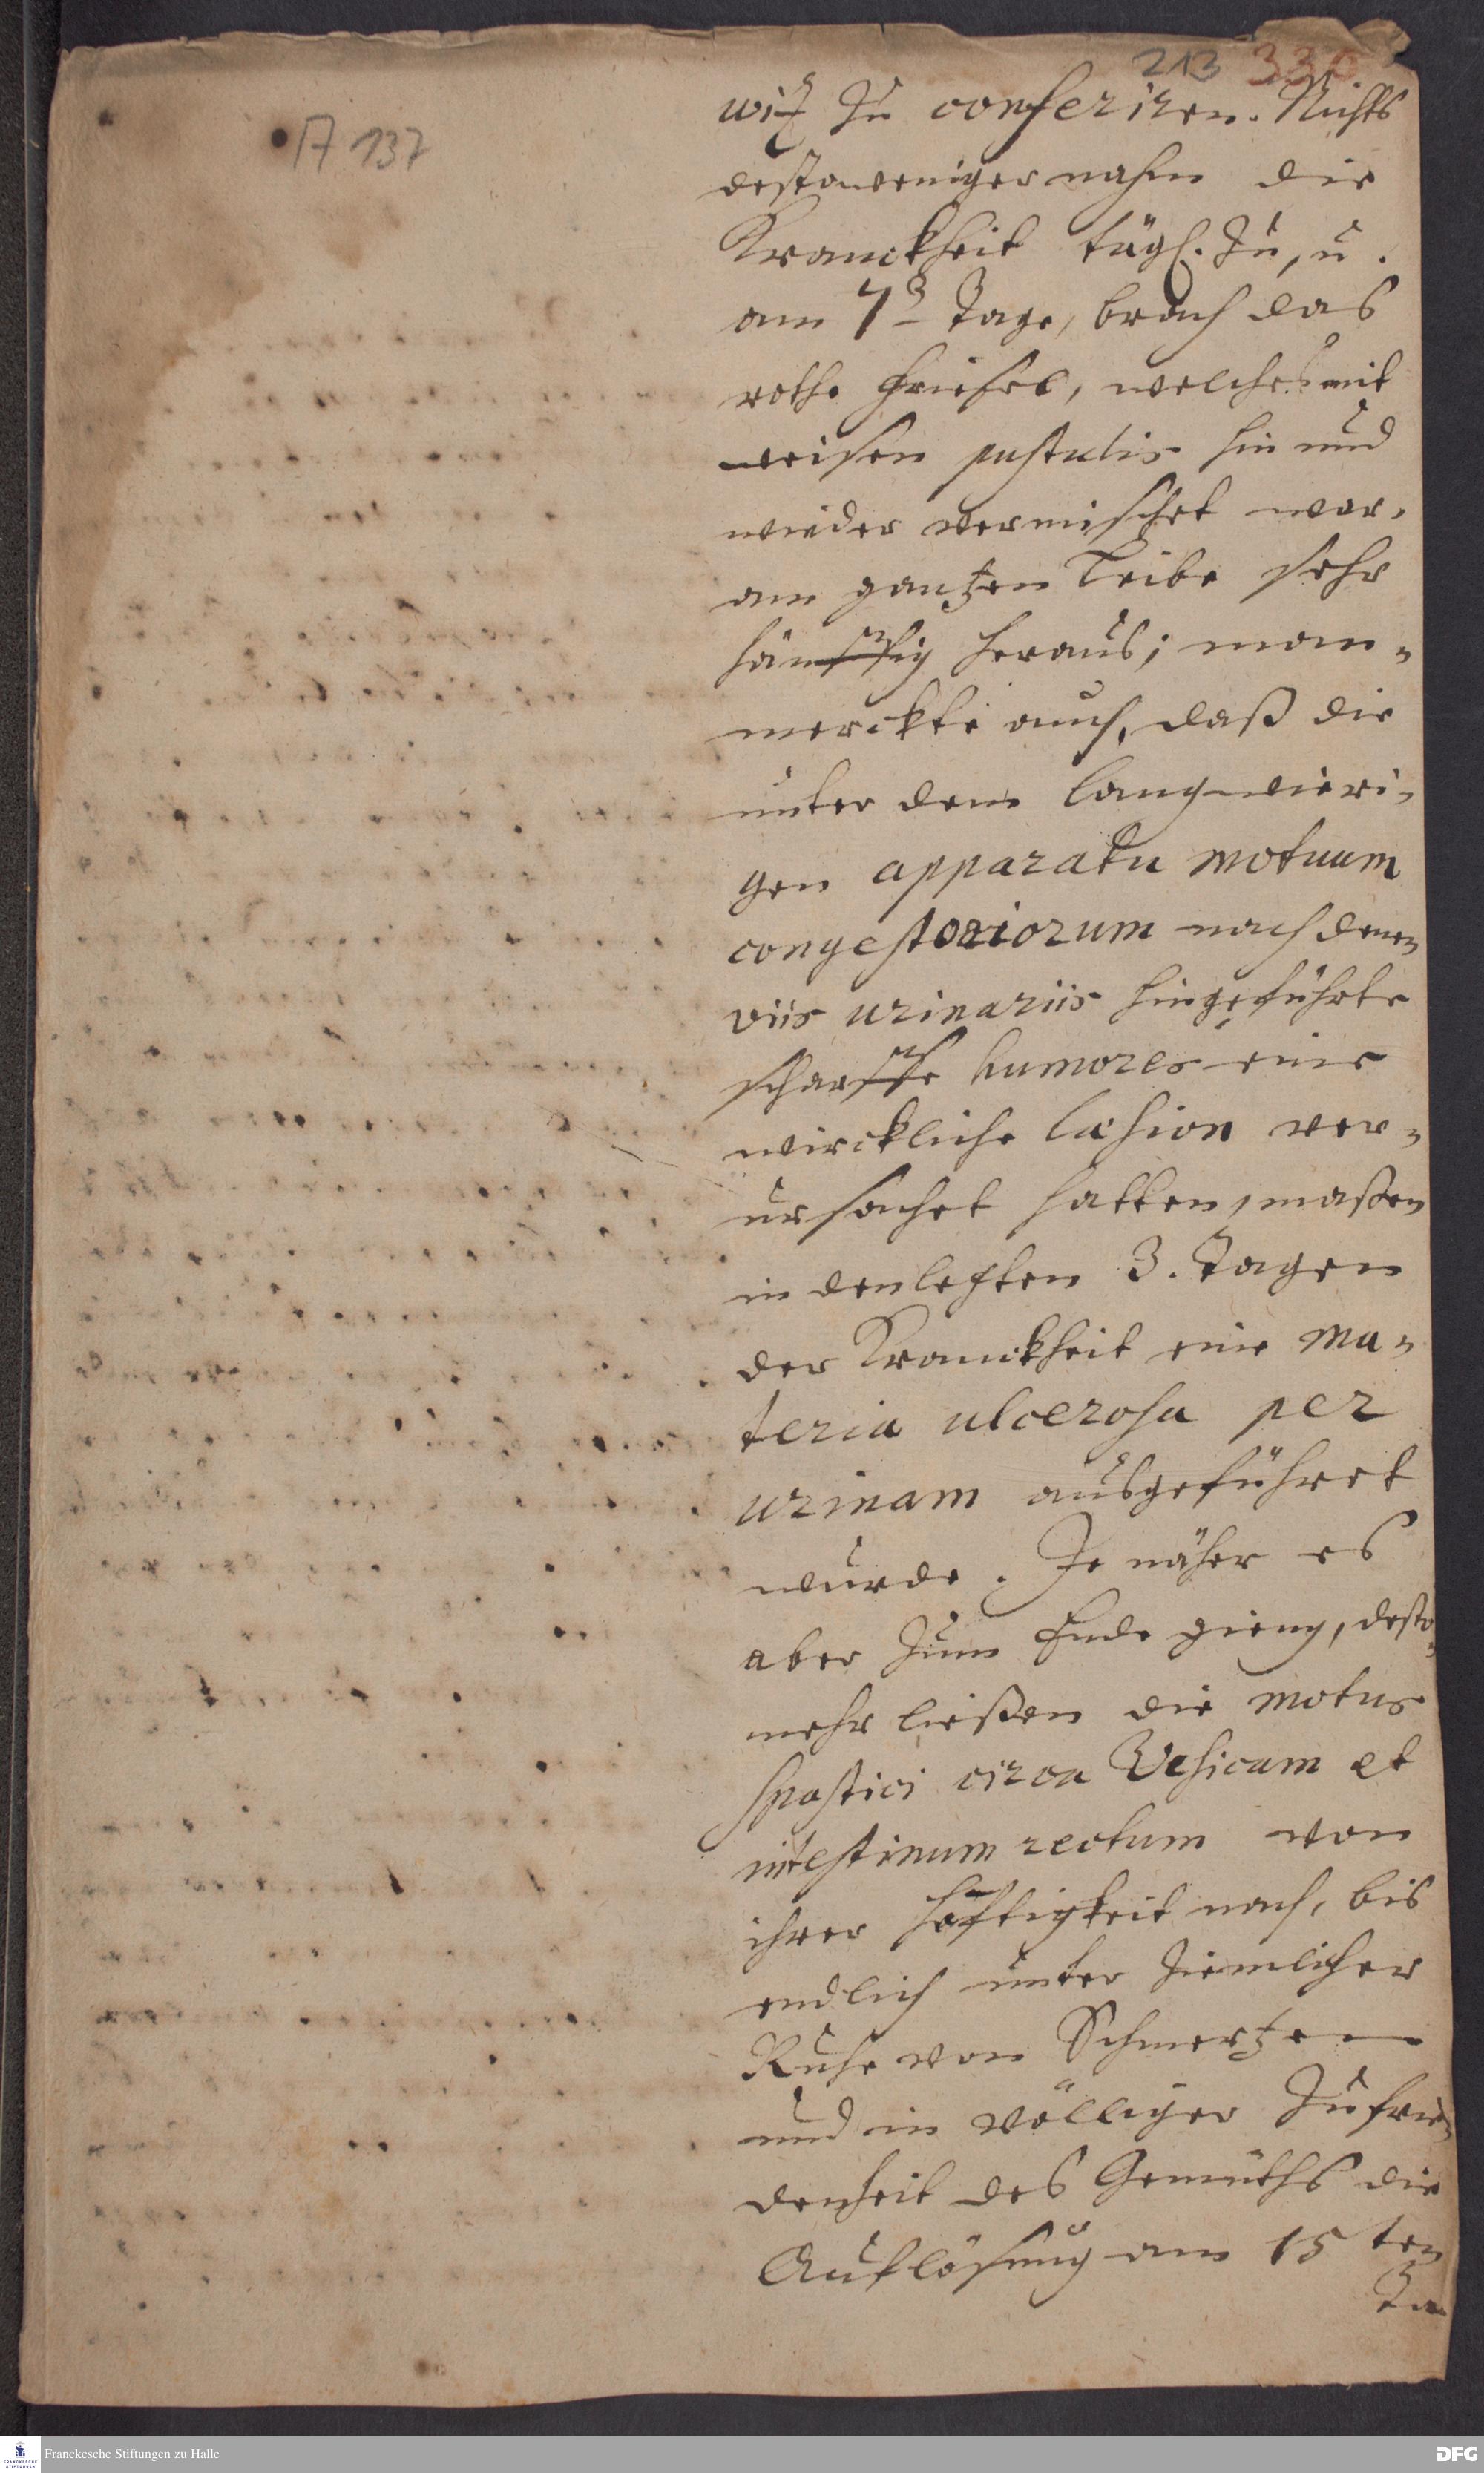 213 330
A 137
zu conferiren. Nichts
destoweniger nahm die
Kranckheit tägl. zu, u.
am 7 Tage, brach das
rothe Friesel, welches mit
weisen pustulis hin und
wieder vermischet war,
am gantzen Leibe sehr
häuffig heraus; man-
merckte auch, daß die
unter dem langwieri-
gen apparatu motuum
congestoriorum nach denen
viis urinariis hingeführte
scharffe humores eine
wirckliche læsion ver-
ursachet hatten, maßen
in den letzten 3. Tagen
der Kranckheit eine ma-
teria ulcerosa per
urinam ausgeführet
wurde. Je näher es
aber zum Ende gieng, desto-
mehr ließen die motus
spastici circa Vesicam et
intestinum rectum von
ihrer Hefftigkeit nach, bis
endlich unter ziemlicher
Ruhe von Schmertzen
und in völliger Zufrie-
denheit des Gemüths die
Auflösung am 15 ten
Ta
Franckesche Stiftungen zu Halle
FRANCKESCHE STIFTUNGEN
DFG